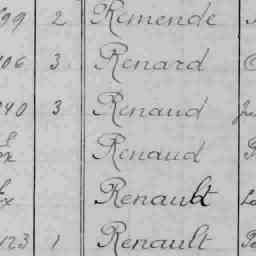 99 2 Remende
106 3 Renard
040 3 Renaud
Renaud
Renault
123 1 Renault